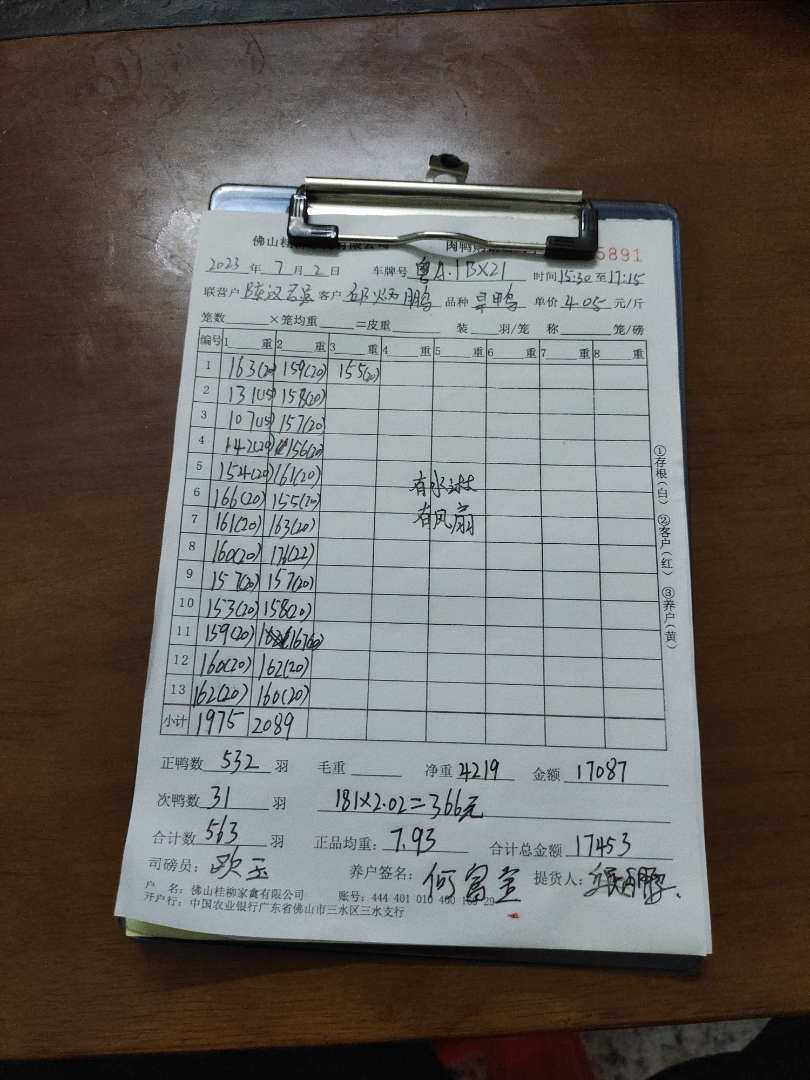 佛山桂 有限公司 肉鸭 5891
2023 年 7 月 2 日 车牌号 粤A·1BX21 时间 15:30 至 17:15
联营户 客户 鹏 品种 旱鸭 单价 4.05 元/斤
笼数 ×笼均重 =皮重 装 羽/笼 称 笼/磅
编号 1 重 2 重 3 重 4 重 5 重 6 重 7 重 8 重
1 163(20) 159(20) 155(20)
2 131(15) 158(20)
3 107(15) 157(20)
4 142(20) 156(20)
5 154(20) 161(20)
6 166(20) 155(20)
7 161(20) 163(20)
8 160(20) 176(22)
9 157(20) 157(20)
10 153(20) 158(20)
11 159(20) 167(20)
12 160(20) 162(20)
13 162(20) 160(20)
小计 1975 2089
有水淋
有风扇
①存根(白) ②客户(红) ③养户(黄)
正鸭数 532 羽 毛重 净重 4219 金额 17087
次鸭数 31 羽 181×2.02=366元
合计数 563 羽 正品均重: 7.93 合计总金额 17453
司磅员: 欧玉 养户签名: 何富金 提货人:
户 名: 佛山桂柳家禽有限公司 账号: 444 401 010 400 29
开户行: 中国农业银行广东省佛山市三水区三水支行